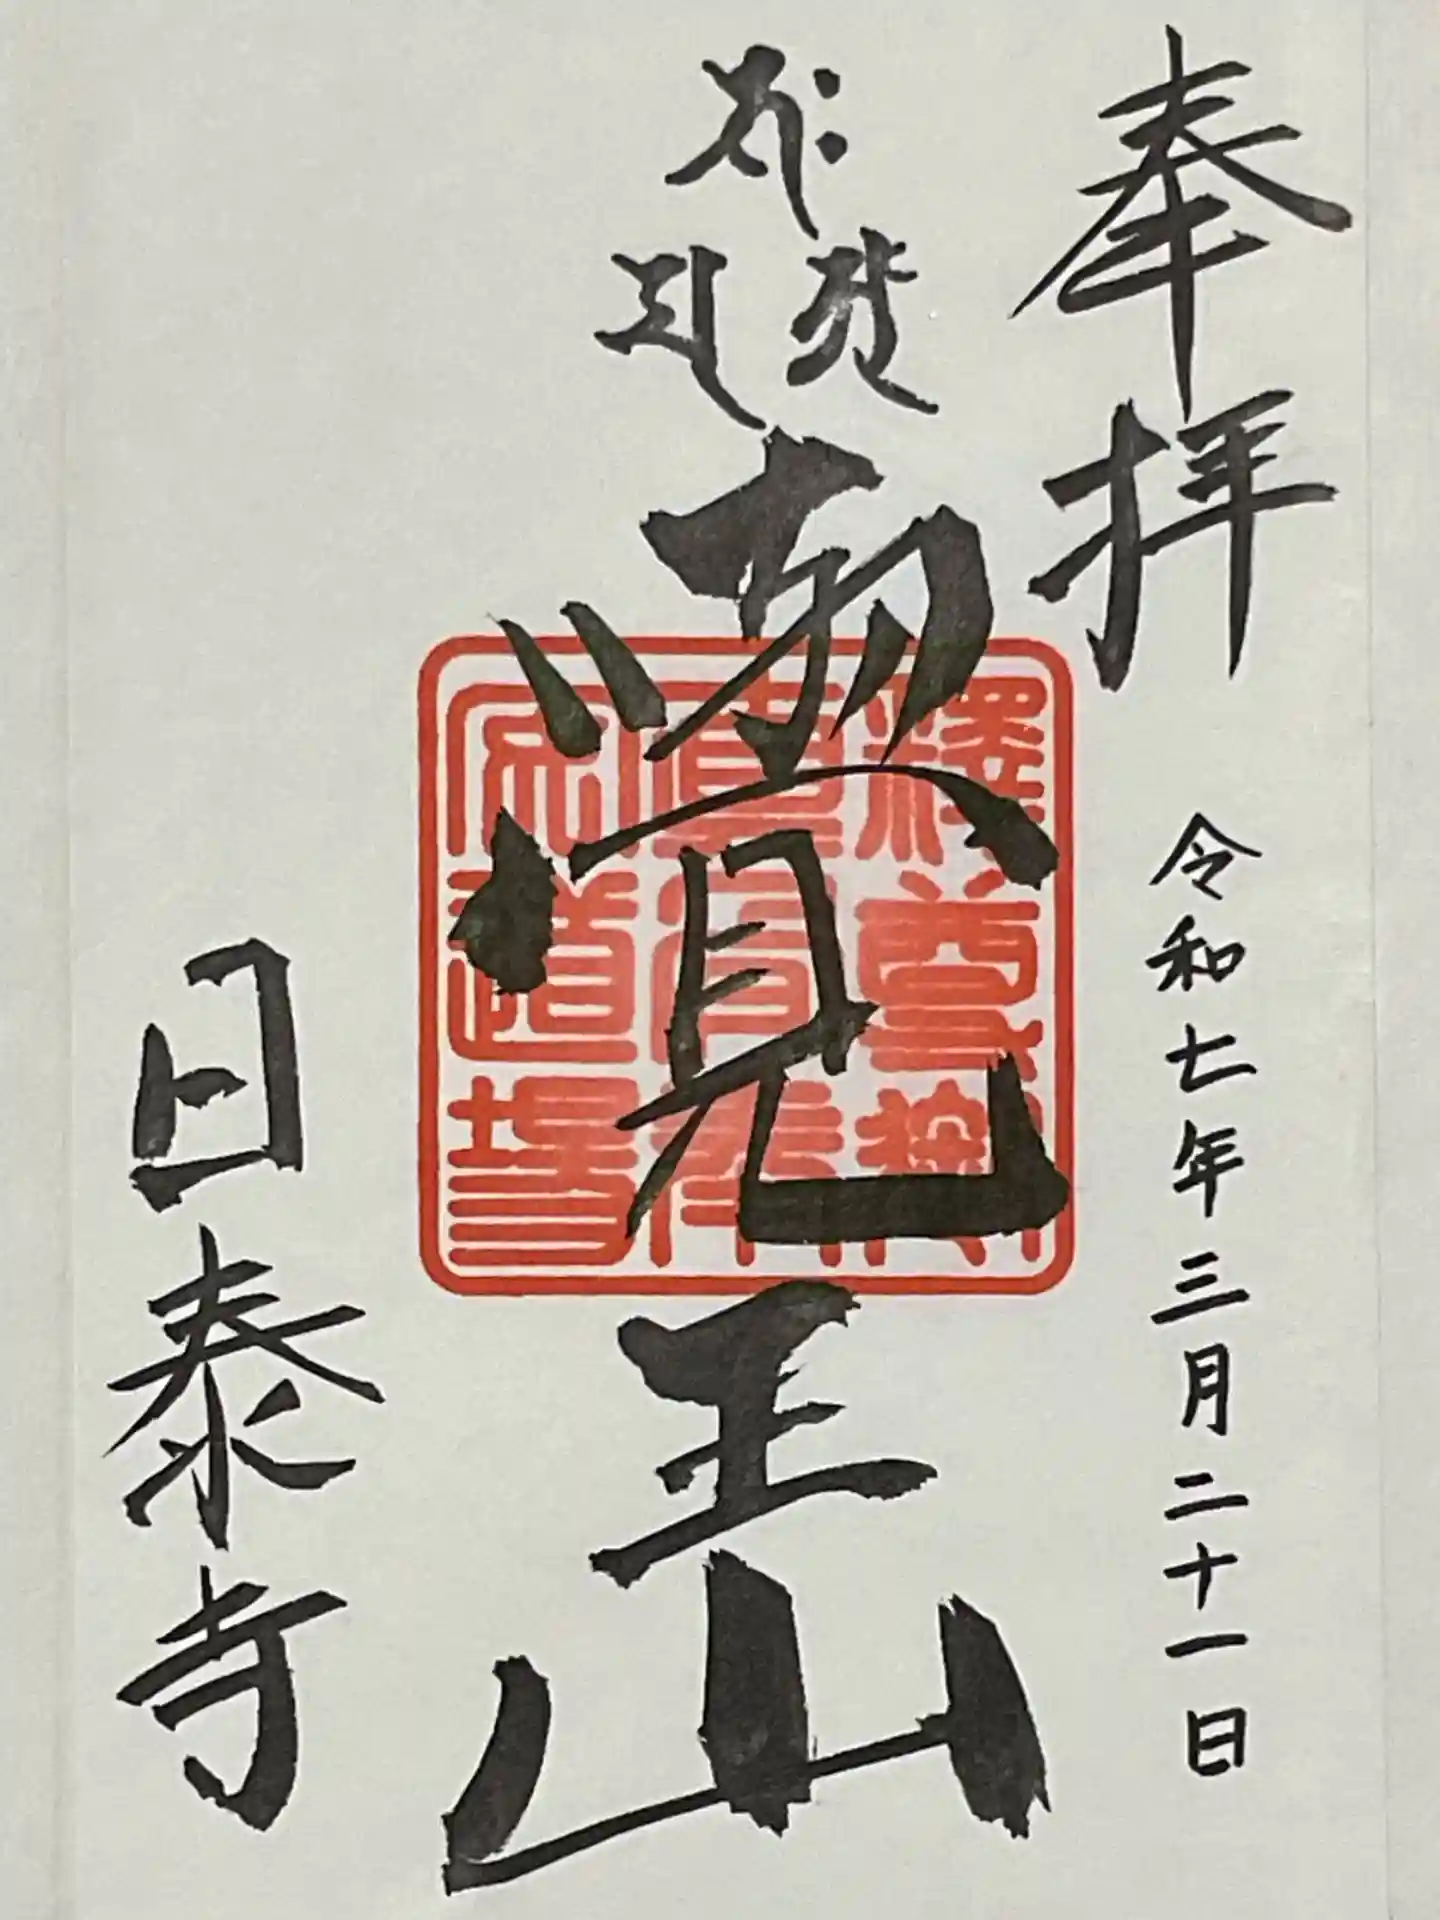 奉拝
令和七年三月二十一日
覺王山
釋尊御
真骨奉
安道場
日泰寺